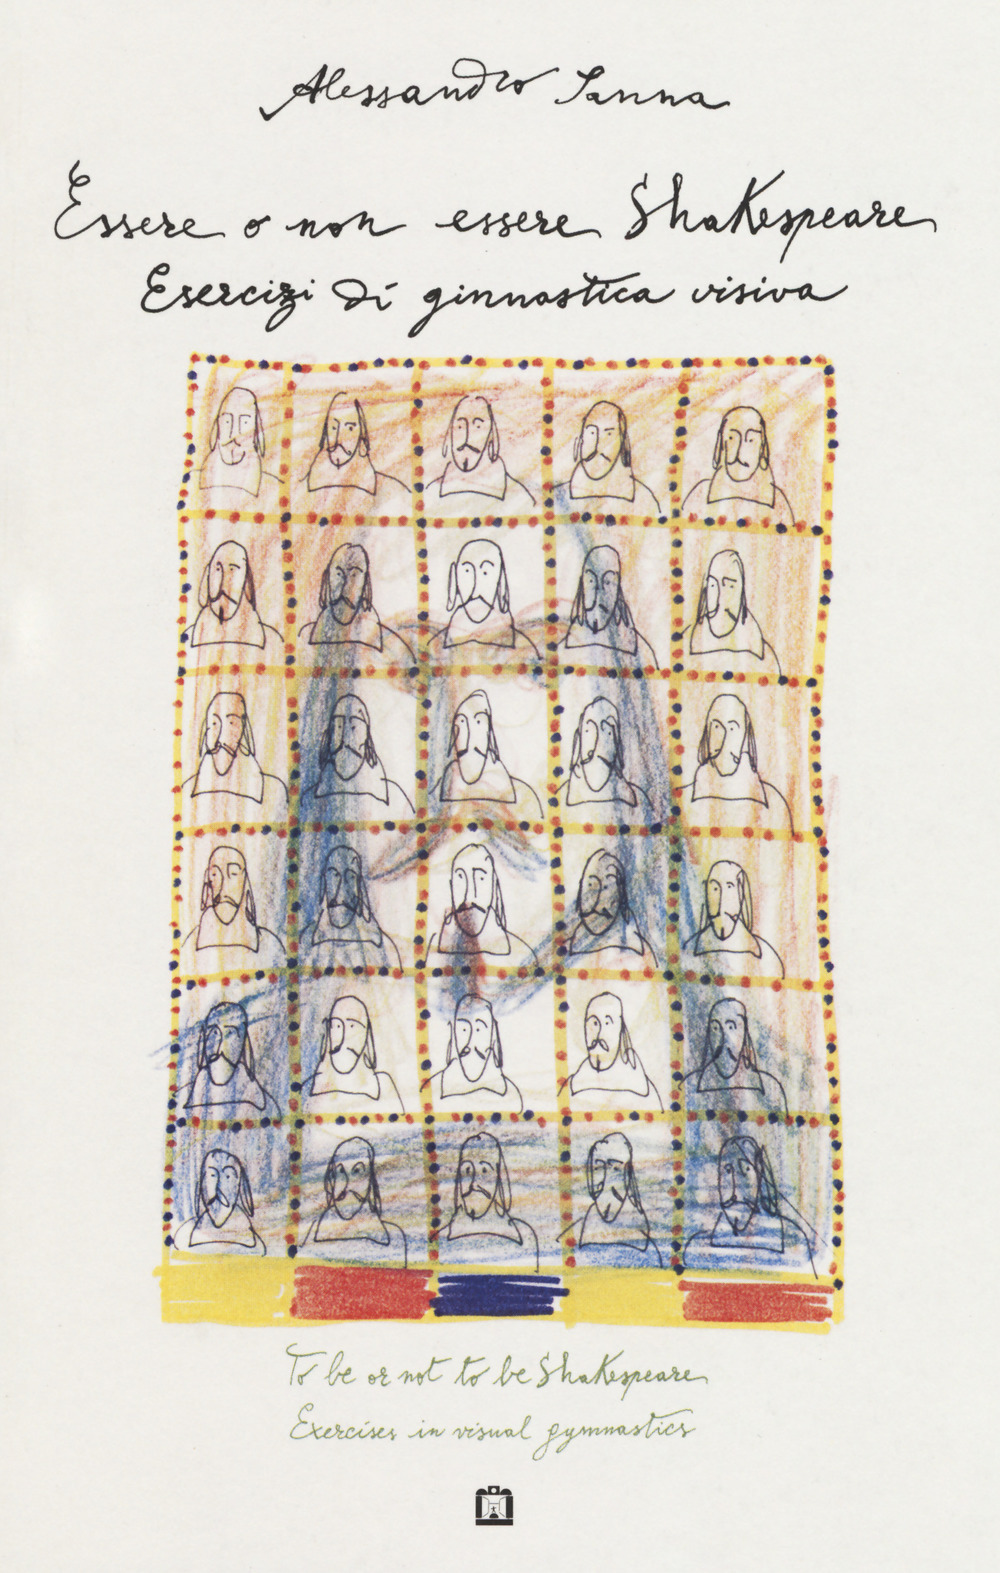 Alessandro Sanna
Essere o non essere Shakespeare
Esercizi di ginnastica visiva
To be or not to be Shakespeare
Exercises in visual gymnastics